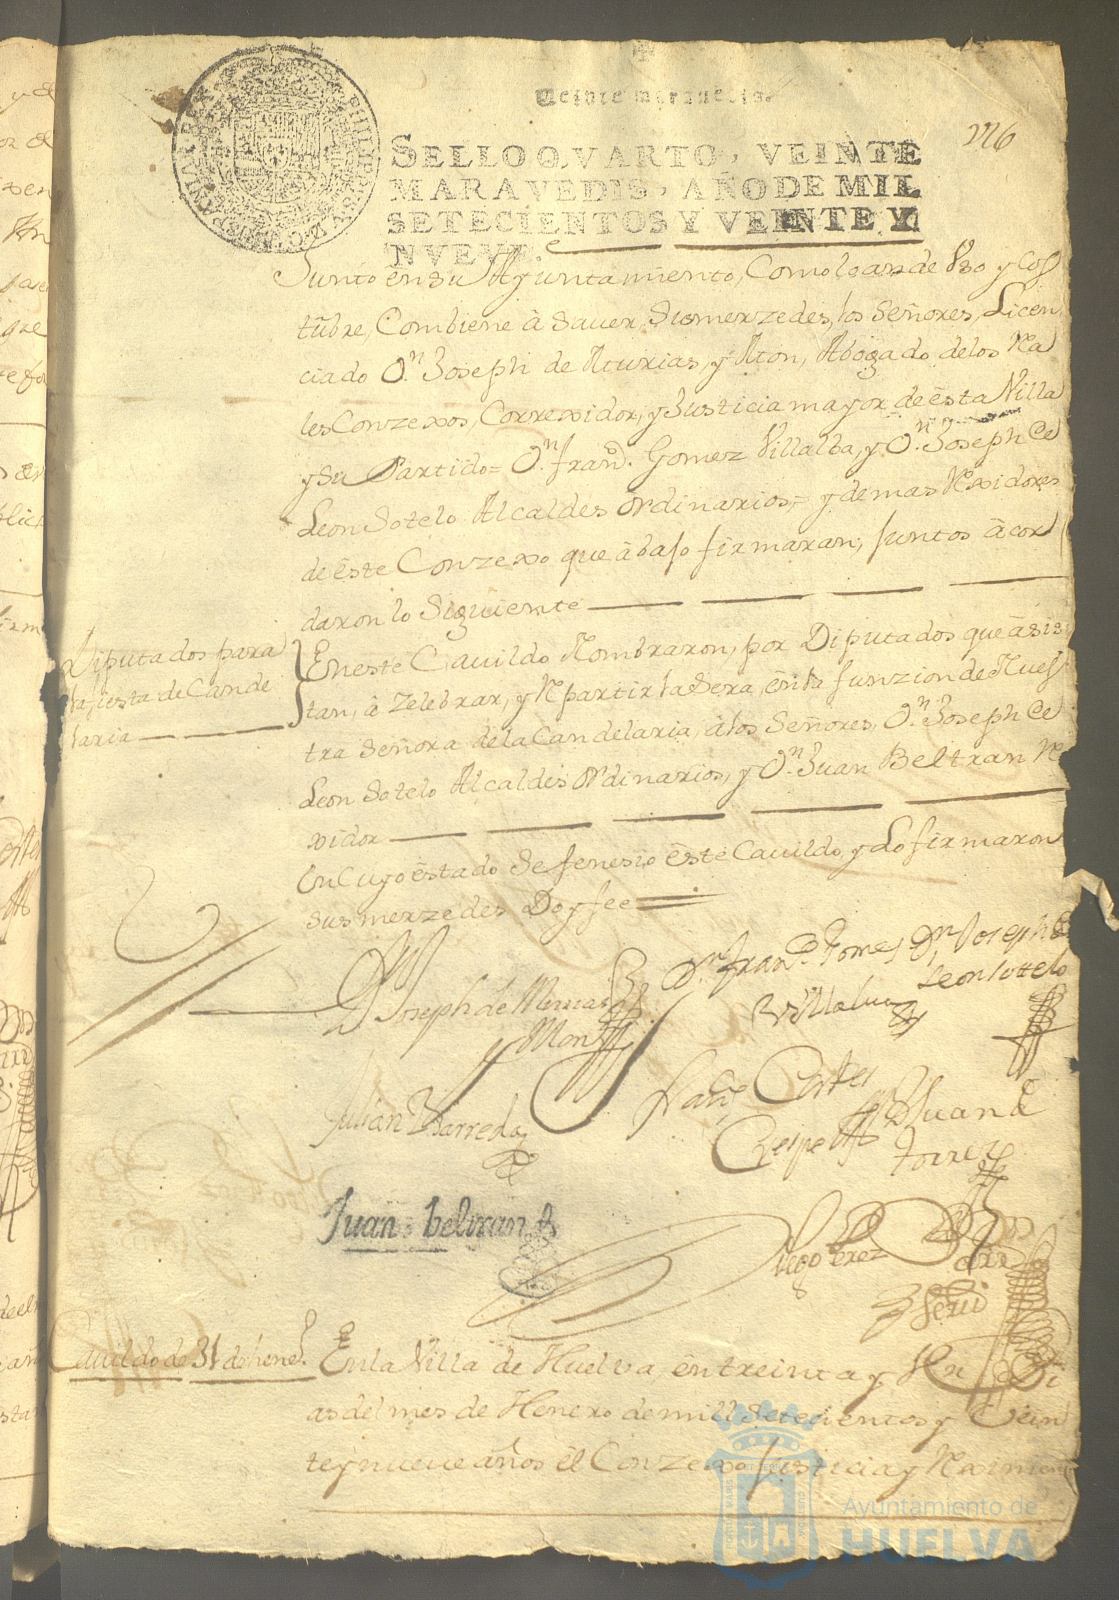 Veinte maravedis.
176
SELLO QVARTO, VEINTE
MARAVEDIS, AÑO DE MIL
SETECIENTOS Y VEINTE Y
NVEVE.
Junto en su Ayuntamiento, Como lo an de Uso y Cos
tũbre, Combiene â Saver, Sus merzedes, los Señores, Licen
ciado Dn. Joseph de Aturias, y Mon, Abogado, de los Rea
les Conzexos, Correxidor, y Justicia mayor de ésta Villa
y Su Partido= Dn. Franco. Gomez Villalba, y Dn. Joseph de
Leon Sotelo Alcaldes ordinarios,= y demas Rexidores
de éste Conzexo que âbajo firmaran, Juntos âcor
daron lo Siguiente
Diputados para
la fiesta de Cande
laria
En este Cauildo Nombraron, por Diputados que âsis
tan, â Zelebrar, y Repartir la Sera, en la funzion de Nues
tra Señora de la Candelaria, â los Señores, Dn. Joseph de
Leon Sotelo Alcaldes Ordinarios, y Dn. Juan Beltran Re
xidor
En Cuyo éstado Se fenesio éste Cauildo, y Lo firmaron
Sus merzedes Doy fee
Joseph de
y Mon
Dn. Franco. Gomes
Villalua
Dn. Joseph de
Leon Sotelo
Julian Barreda
Franco. Cortes
Juan de
Torres
Juan beltran
Diego Perez
Cauildo de 31 de henero.
En la Villa de Huelva, en treinta y Un Di
as del mes de Henero de mill Setecientos y Vein
te y nueue años el Conzexo Justicia y Reximiento
Ayuntamiento de
HUELVA